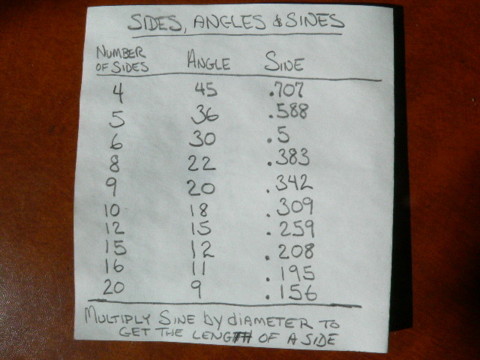 SIDES, ANGLES & SINES
NUMBER OF SIDES ANGLE SINE
4 45 .707
5 36 .588
6 30 .5
8 22 .383
9 20 .342
10 18 .309
12 15 .259
15 12 .208
16 11 .195
20 9 .156
MULTIPLY SINE by diAMETER TO
GET THE LENGTH OF A SIDE